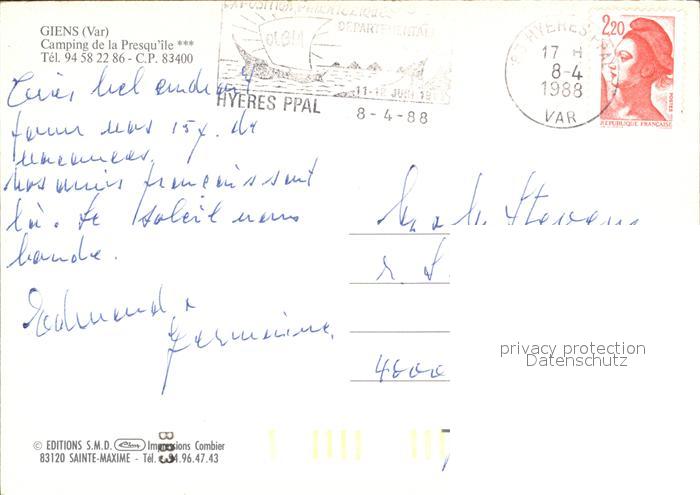 GIENS (Var)
Camping de la Presqu'île ***
Tél. 94 58 22 86 - C.P. 83400
EXPOSITION PHILATELIQUE
DEPARTEMENTALE
OLBIA
HYERES PPAL
8-4-88
83 HYERES PPAL
17 H
8-4
1988
VAR
2,20
POSTES
REPUBLIQUE FRANÇAISE
bel endroit
pour nos 15 j. de
vacances.
Nos amis français sont
là. Le soleil nous
boude.
Edmond &
Germaine.
Stevens
4000
privacy protection
Datenschutz
© EDITIONS S.M.D. Impressions Combier
83120 SAINTE-MAXIME - Tél. 94.96.47.43